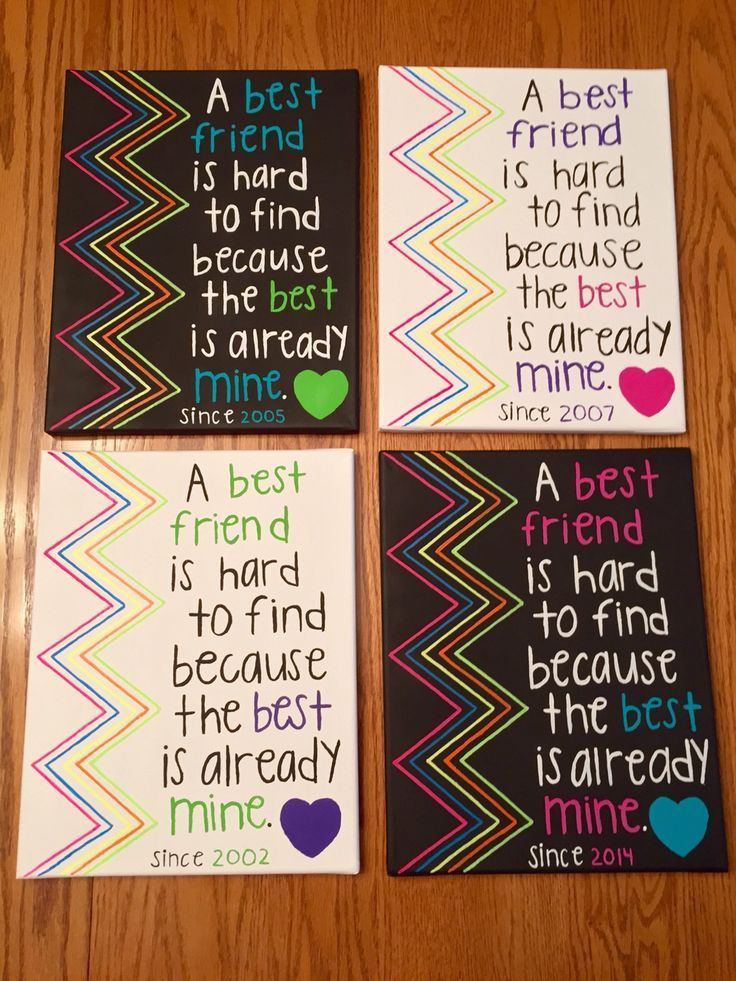 A best
friend
is hard
to find
because
the best
is already
mine.
since 2005
A best
friend
is hard
to find
because
the best
is already
mine.
since 2007
A best
friend
is hard
to find
because
the best
is already
mine.
since 2002
A best
friend
is hard
to find
because
the best
is already
mine.
since 2014